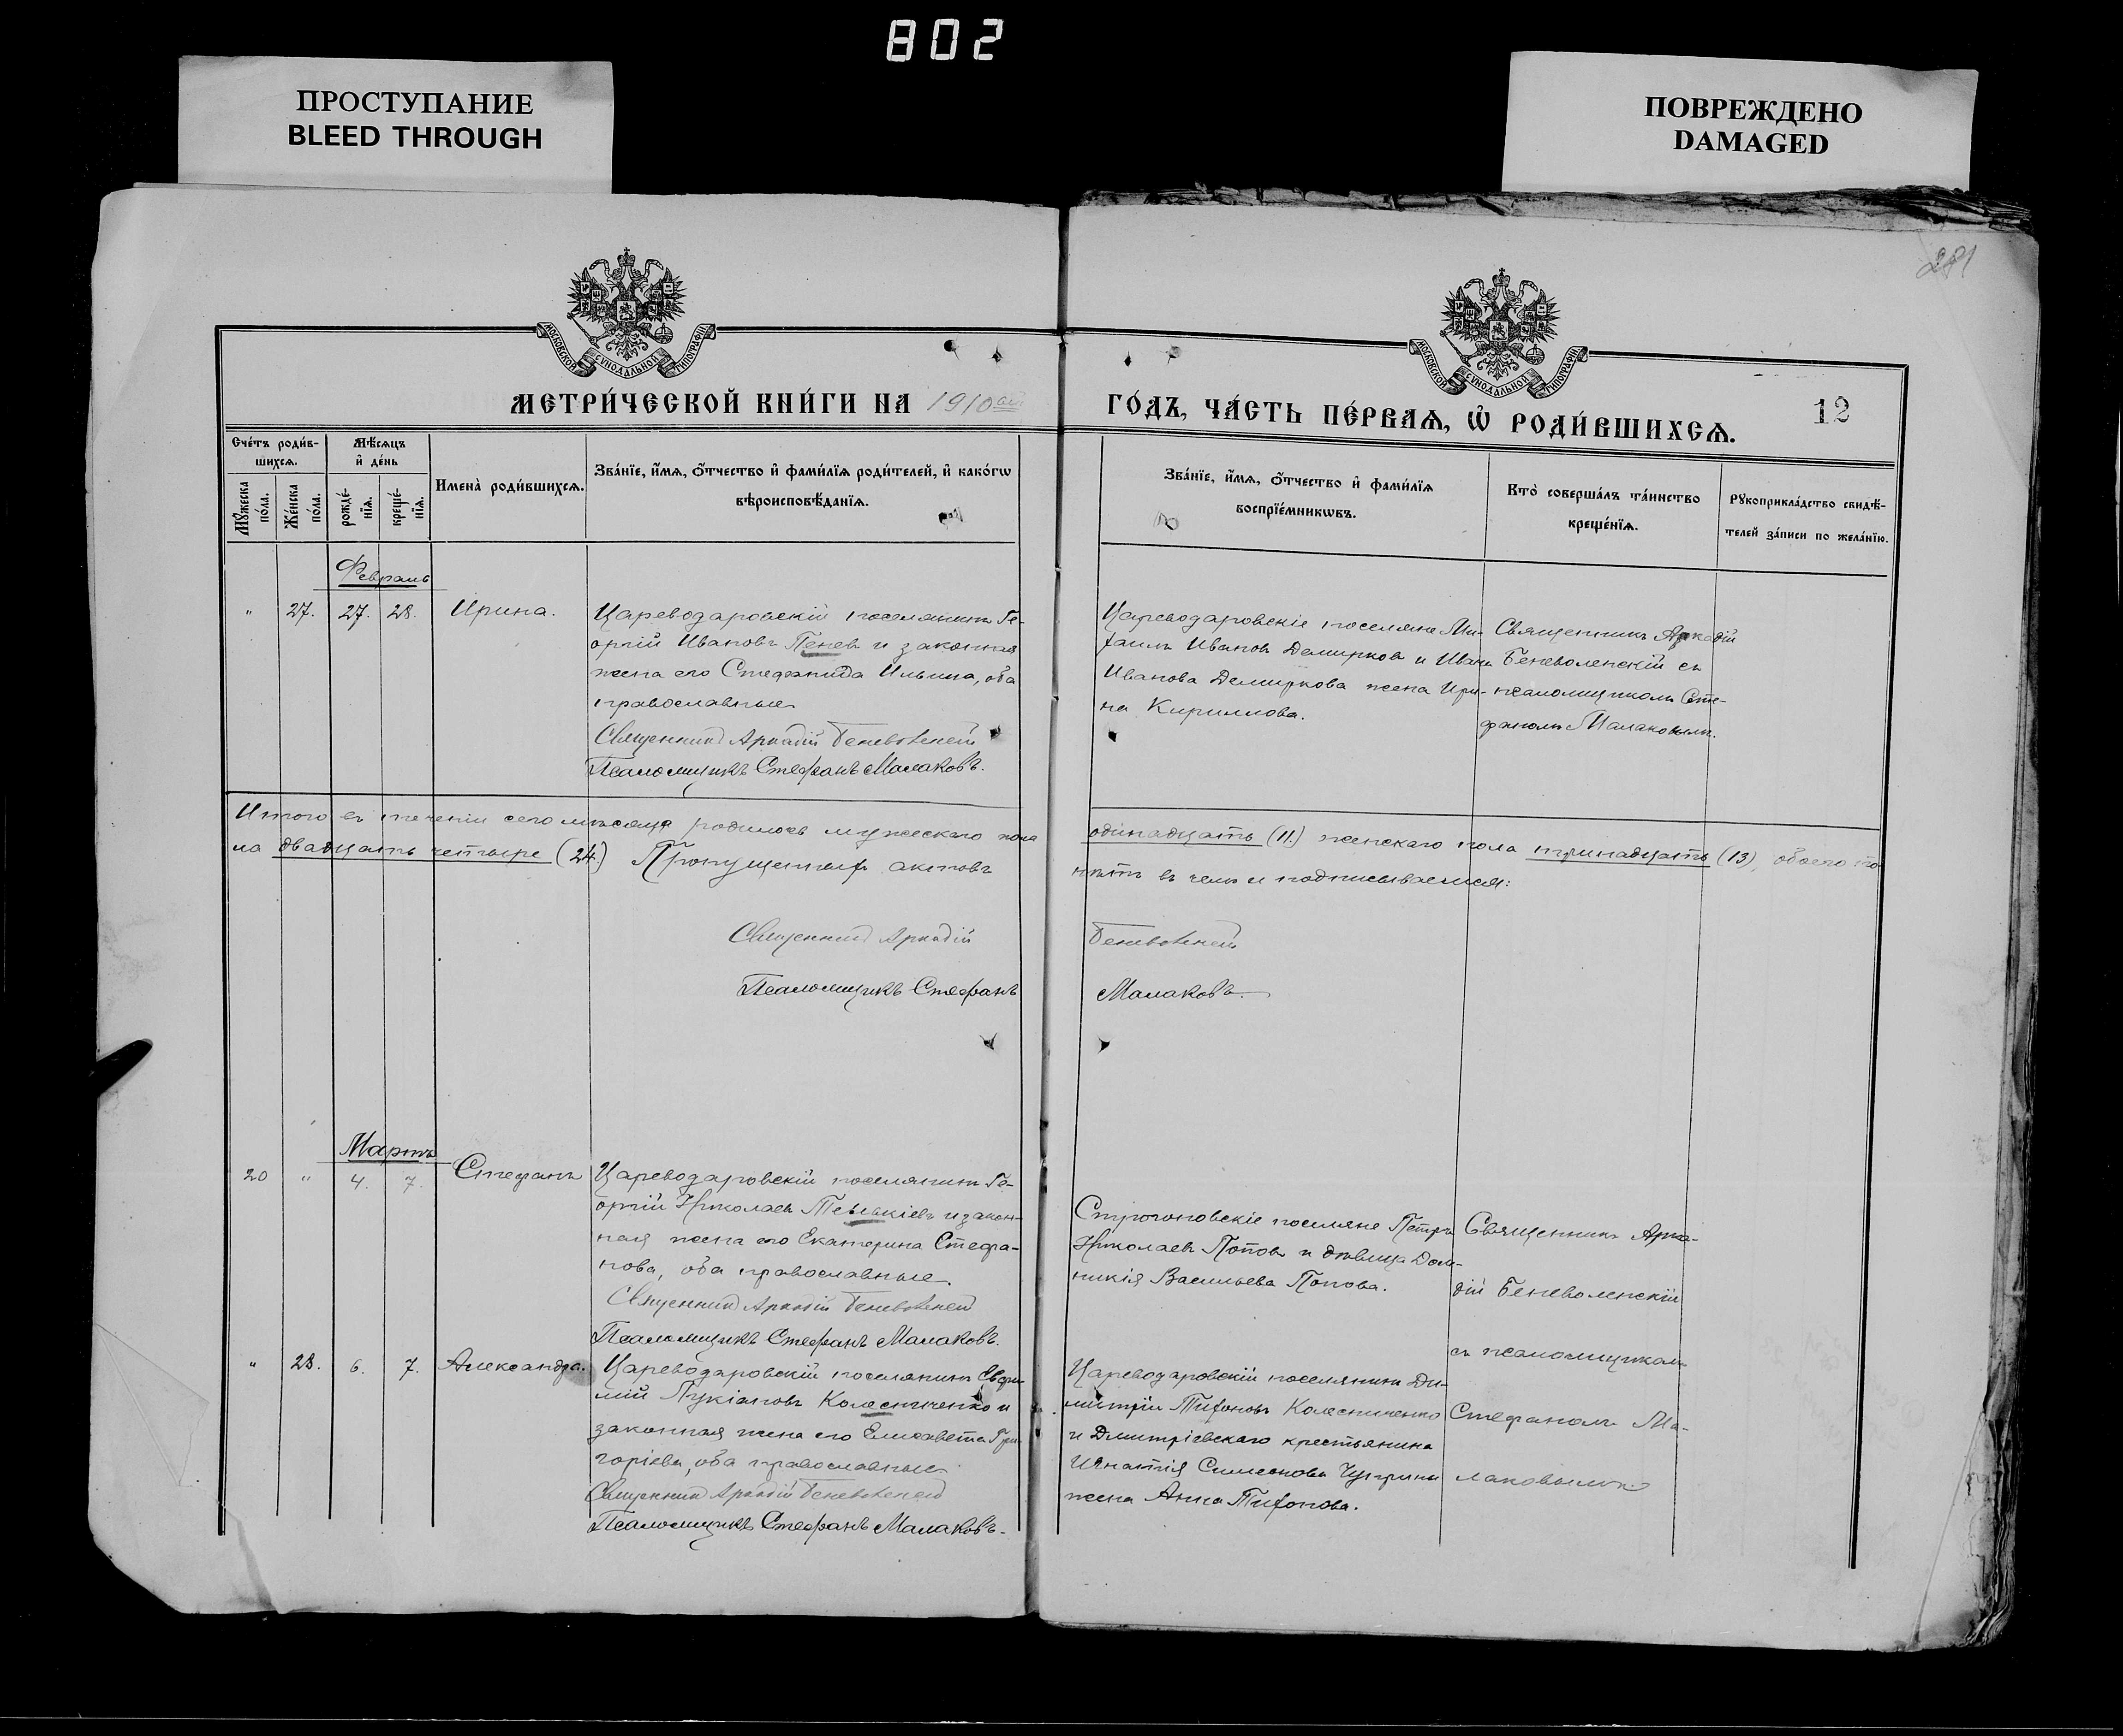 802
ПРОСТУПАНИЕ
BLEED THROUGH
ПОВРЕЖДЕНО
DAMAGED
281
МОСКОВСКОЙ СѴНОДАЛЬНОЙ ТИПОГРАФІИ
МОСКОВСКОЙ СѴНОДАЛЬНОЙ ТИПОГРАФІИ
МЕТРИ́ЧЕСКОЙ КНИ́ГИ НА 1910ый
ГО́ДЪ, ЧА́СТЬ ПЕ́РВАѦ, Ѡ҆ РОДИ́ВШИХСѦ.
12
Сче́тъ роди́в-
шихсѧ.
Мꙋ́жеска
по́ла.
Же́нска
по́ла.
Мѣ́сѧцъ
и҆ де́нь
рожде́-
нїѧ.
креще́-
нїѧ.
Имена̀ роди́вшихсѧ.
Зва́нїе, и҆́мѧ, ѻ҆́тчество и҆ фами́лїѧ роди́телей, и҆ како́гѡ
вѣроисповѣ́данїѧ.
Зва́нїе, и҆́мѧ, ѻ҆́тчество и҆ фами́лїѧ
воспрїе́мникѡвъ.
Кто̀ соверша́лъ та́инство
креще́нїѧ.
Рꙋкоприкла́дство свидѣ́-
телей за́писи по жела́нїю.
Февраль
" 27. 27. 28. Ирина.
Цареводаровскій поселянинъ Ге-
оргій Ивановъ Пенев и законная
жена его Стефанида Ильина, оба
православные
Священникъ Аркадій Беневоленскій
Псаломщикъ Стефанъ Малаковъ.
Цареводаровскіе поселяне Ми-
хаилъ Иванов Демирков и Ивана
Иванова Демиркова жена Ири-
на Кириллова.
Священникъ Аркадій
Беневоленскій съ
псаломщикомъ Сте-
фаномъ Малаковымъ.
Итого въ теченіи сего мѣсяца родилось мужескаго пола
одинадцать (11.) женскаго пола тринадцать (13), обоего по-
ла двадцать четыре (24.) Пропущенныхъ актовъ
нѣтъ въ чемъ и подписываемся:
Священникъ Аркадій
Беневоленскій
Псаломщикъ Стефанъ
Малаковъ.
Мартъ
20 " 4. 7. Стефанъ
Цареводаровскій поселянинъ Ге-
оргій Николаевъ и закон-
ная жена его Екатерина Стефа-
нова, оба православные.
Священникъ Аркадій Беневоленскій
Псаломщикъ Стефанъ Малаковъ.
Строгоновскіе поселяне Петръ
Николаевъ Попов и дѣвица Дом-
никія Васильева Попова.
Священникъ Арка-
дій Беневоленскій
съ псаломщикомъ
Стефаномъ Ма-
лаковымъ.
" 28. 6. 7. Александра.
Цареводаровскій поселянинъ Евфи-
мій Лукіановъ Колесниченко и
законная жена его Елисавета Гри-
горіева, оба православные
Священникъ Аркадій Беневоленскій
Псаломщикъ Стефанъ Малаковъ.
Цареводаровскій поселянинъ Ди-
митрій Тифоновъ Колесниченко
и Дмитріевскаго крестьянина
Игнатія Симеонова
жена Анна Тифонова.